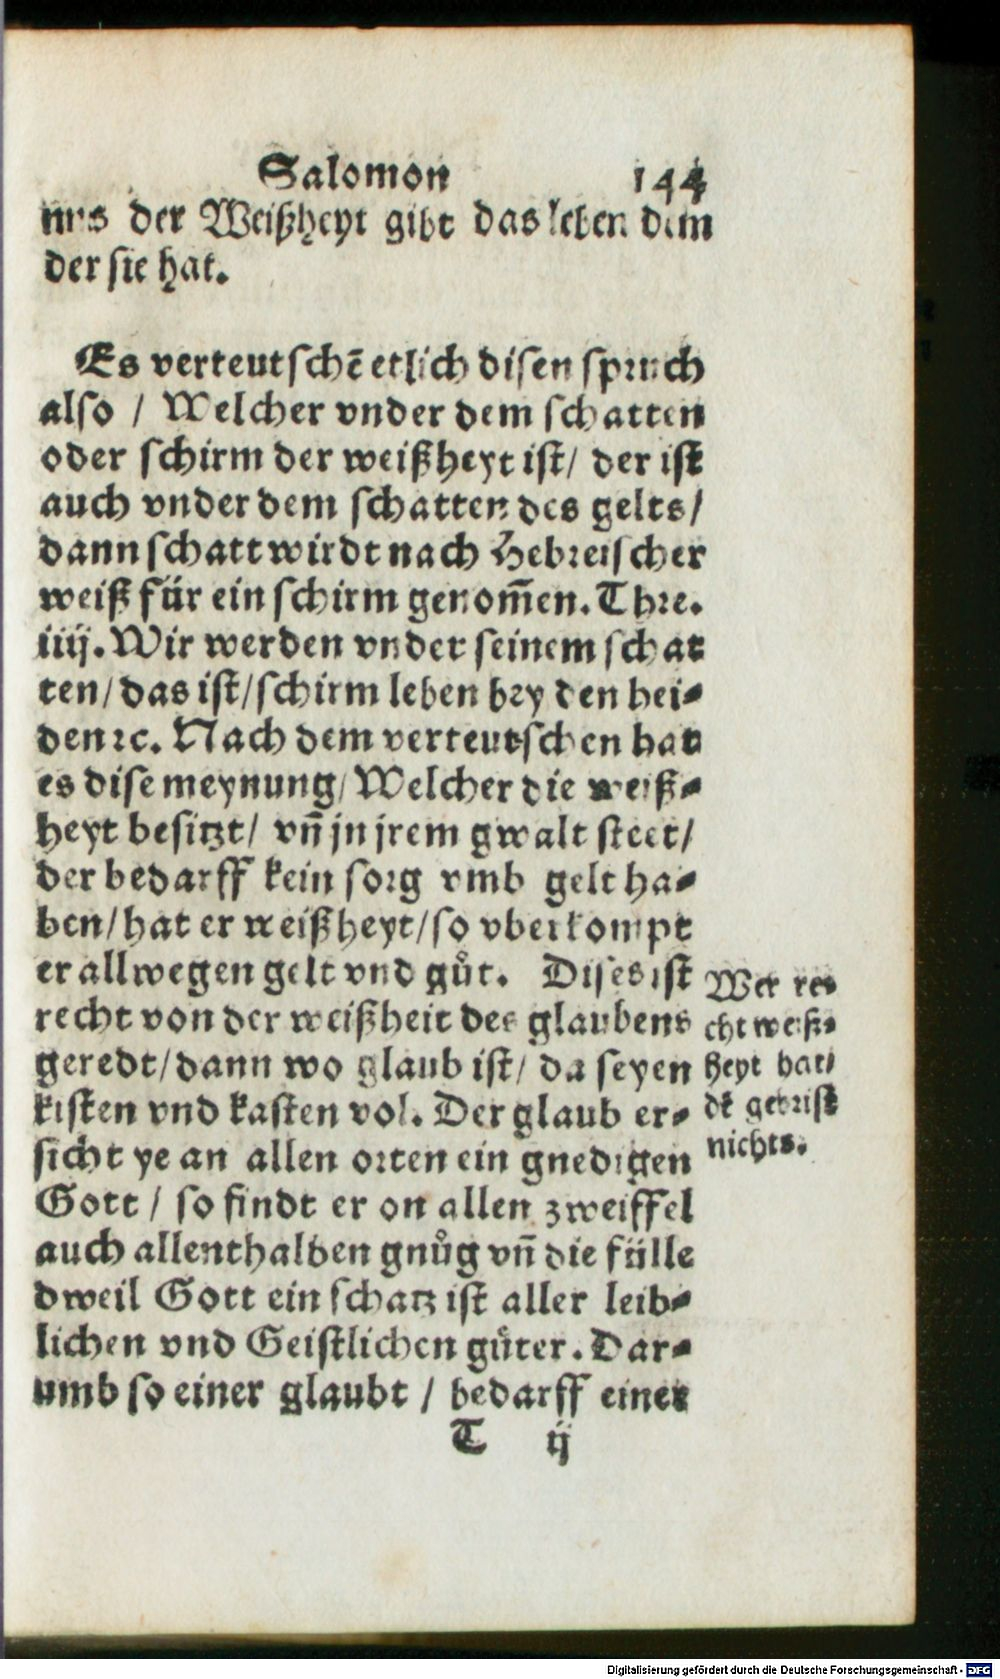 Salomon 144
nus der Weißheyt gibt das leben dem
der sie hat.
Es verteutschē etlich disen spruch
also / Welcher vnder dem schatten
oder schirm der weißheyt ist / der ist
auch vnder dem schatten des gelts /
dann schatt wirdt nach Hebreischer
weiß für ein schirm genom̃en. Thre.
iiij. Wir werden vnder seinem schat
ten / das ist / schirm leben bey den hei⸗
den ꝛc. Nach dem verteutschen hat
es dise meynung / Welcher die weiß⸗
heyt besitzt / vñ jn jrem gwalt steet /
der bedarff kein sorg vmb gelt ha⸗
ben / hat er weißheyt / so vberkompt
er allwegen gelt vnd gůt. Dises ist
recht von der weißheit des glaubens
geredt / dann wo glaub ist / da seyen
kisten vnd kasten vol. Der glaub er⸗
sicht ye an allen orten ein gnedigen
Gott / so findt er on allen zweiffel
auch allenthalben gnůg vñ die fülle
dweil Gott ein schatz ist aller leib⸗
lichen vnd Geistlichen gůter. Dar⸗
umb so einer glaubt / bedarff einer
T ij
Wer re⸗
cht weiß⸗
heyt hat /
dē gebrist
nichts.
Digitalisierung gefördert durch die Deutsche Forschungsgemeinschaft - DFG